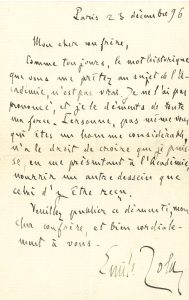 Paris 23 décembre 96
Mon cher confrère,
Comme toujours, le mot historique
que vous me prêtez au sujet de l'A-
cadémie, n'est pas vrai. Je ne l'ai pas
prononcé, et je le démens de toute
ma force. Personne, pas même vous,
qui êtes un homme considérable,
n'a le droit de croire que je puis-
se, en me présentant à l'Académie,
nourrir un autre dessein que
celui d'y être reçu.
Veuillez publier ce démenti, mon
cher confrère, et bien cordiale-
ment à vous.
Emile Zola